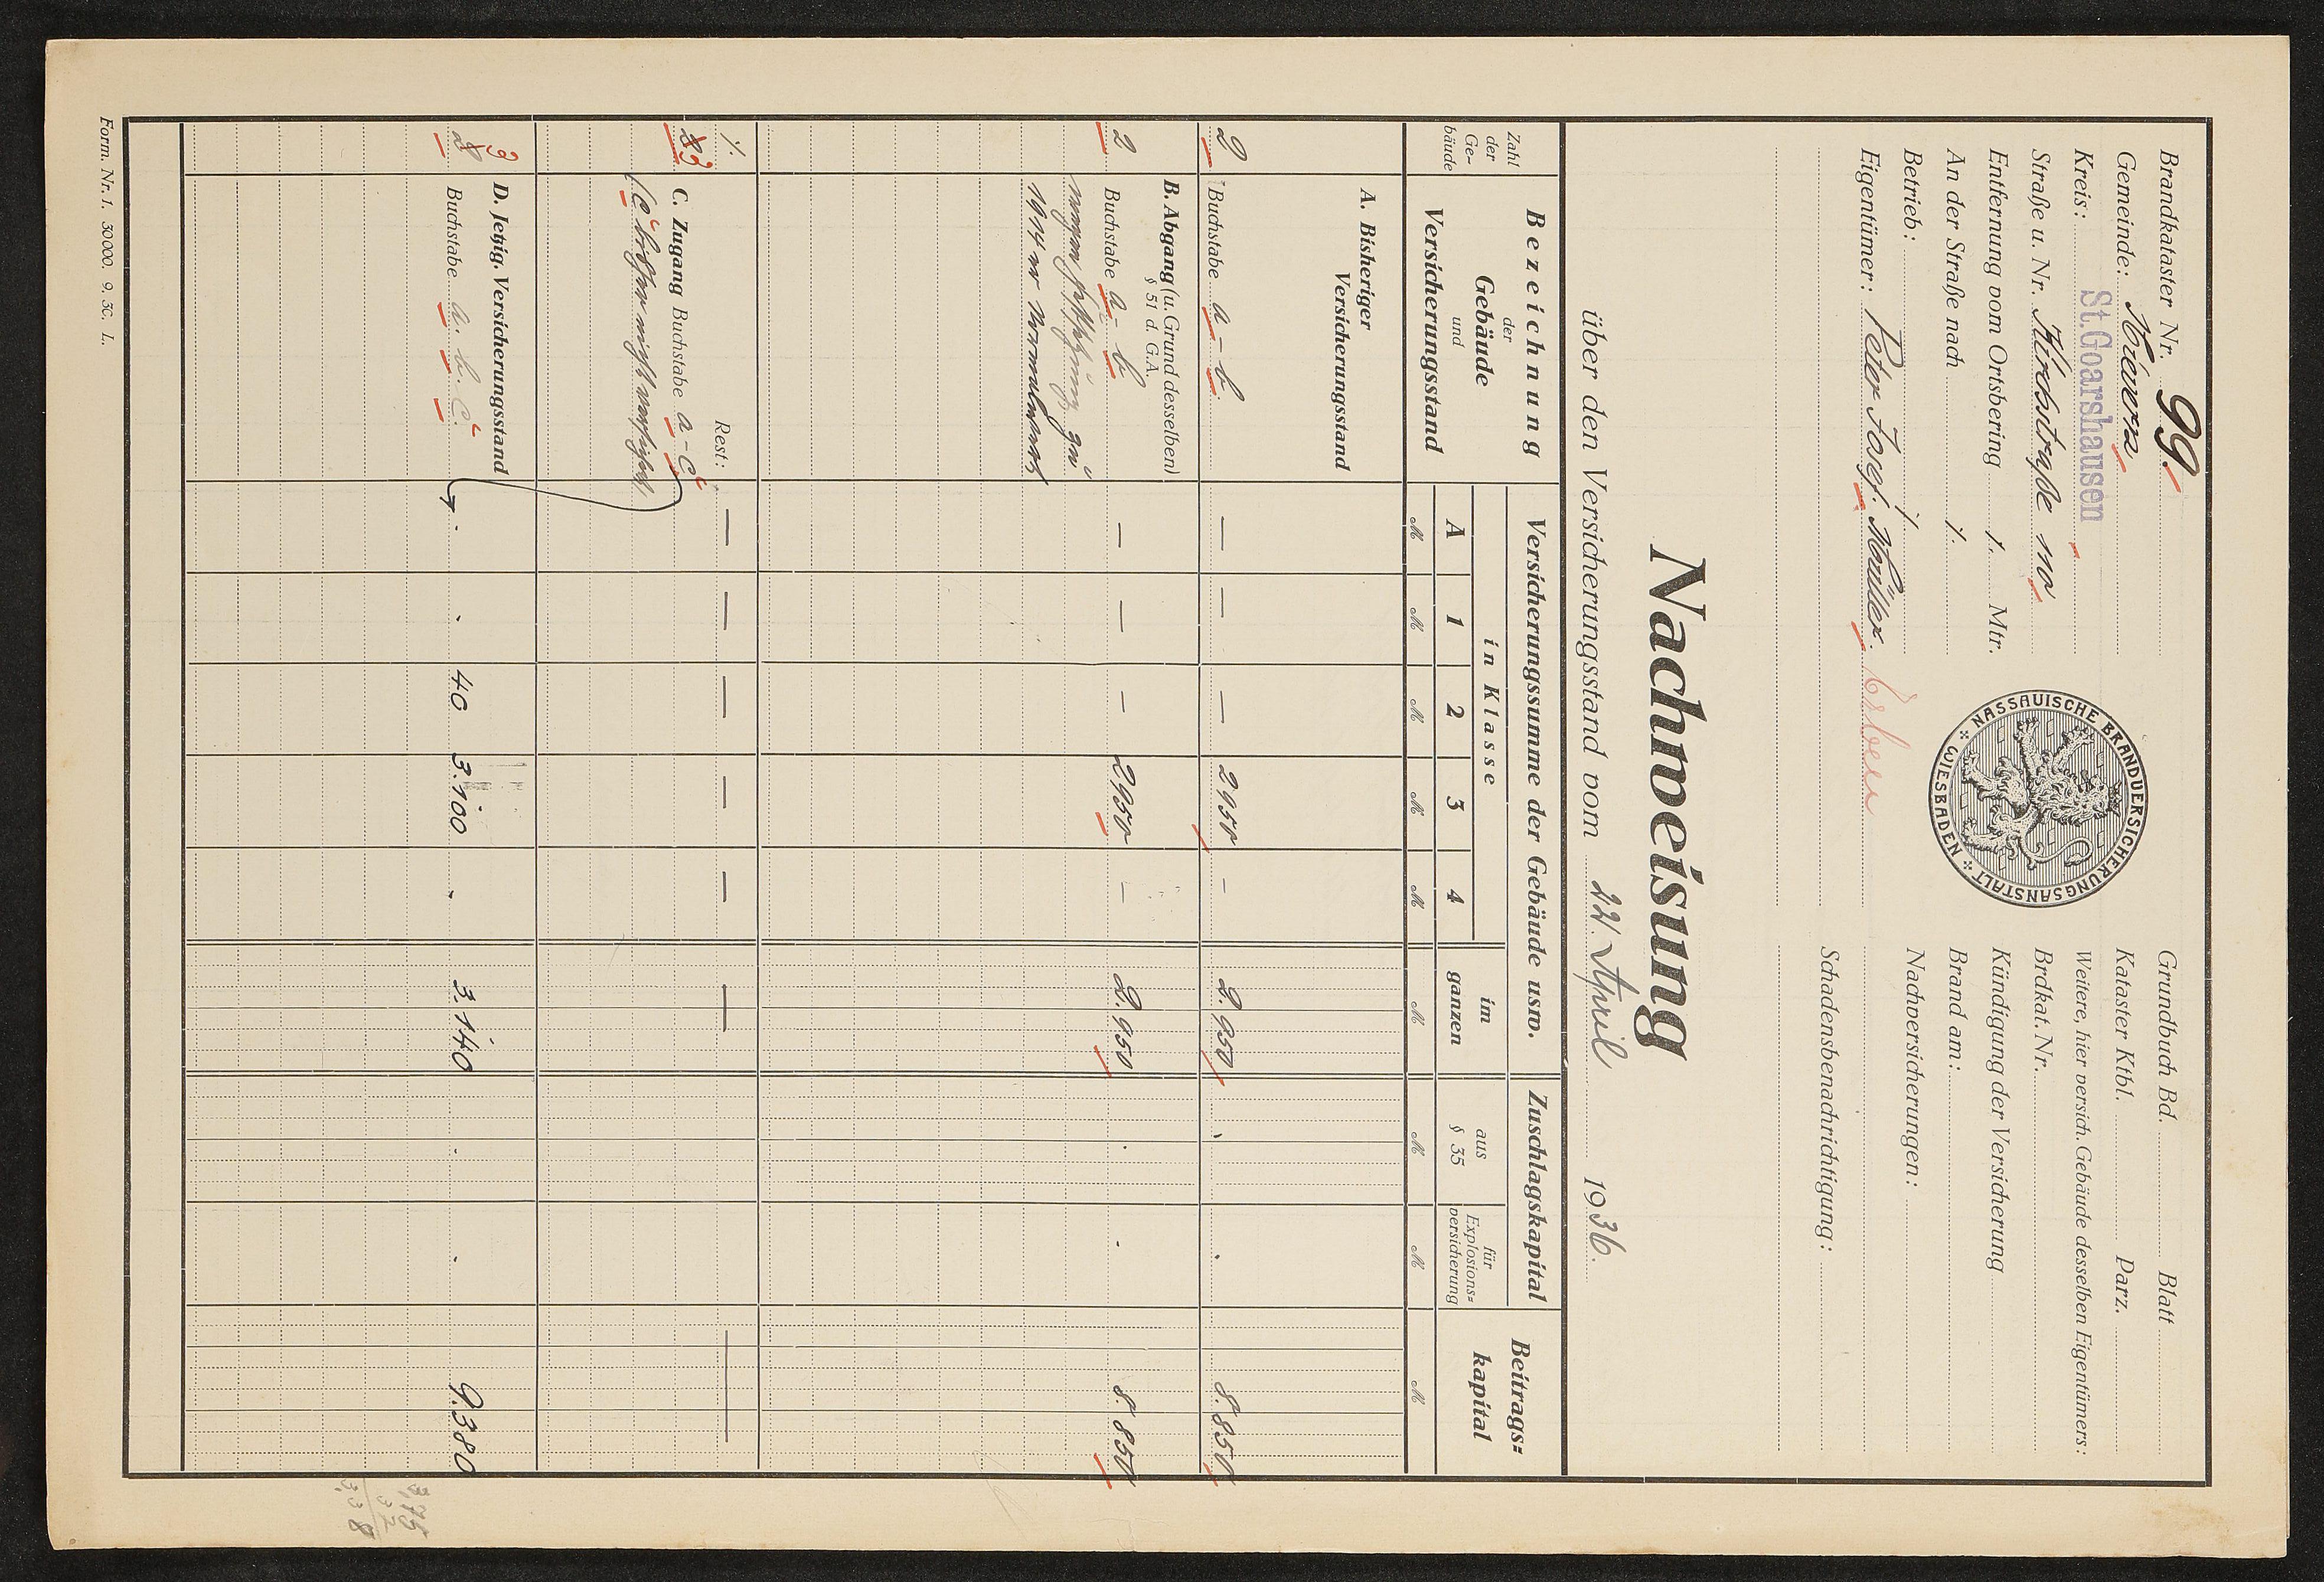 Brandkataster Nr. 99.
Gemeinde: Kievern
Kreis: St. Goarshausen
Straße u. Nr. Kirchstraße 110
Entfernung vom Ortsbering ./. Mtr.
An der Straße nach ./.
Betrieb: ./.
Eigentümer: Peter Josef Müller. Erben
NASSAUISCHE BRANDVERSICHERUNGSANSTALT
WIESBADEN
Grundbuch Bd. Blatt
Kataster Ktbl. Parz.
Weitere, hier versich. Gebäude desselben Eigentümers:
Brdkat. Nr.
Kündigung der Versicherung
Brand am:
Nachversicherungen:
Schadensbenachrichtigung:
Nachweisung
über den Versicherungsstand vom 22. April 1936.
Zahl der Ge-bäude
Bezeichnung der Gebäude und Versicherungsstand
Versicherungssumme der Gebäude usw.
in Klasse
A 1 2 3 4
im ganzen
Zuschlagskapital
aus § 35
für Explosions-versicherung
Beitrags-kapital
M M M M M M M M M
A. Bisheriger Versicherungsstand
2 Buchstabe a - b — — — 2950 — 2.950 . . 8.850
B. Abgang (u. Grund desselben) § 51 d. G.A.
2 Buchstabe a - b — — — 2950 — 2.950 . . 8.850
wegen Abschätzung zu
1914er Normalwert
./. Rest: — — — — — — —
3 C. Zugang Buchstabe a - c
("c" bisher nicht versichert)
D. Jetzig. Versicherungsstand
3 Buchstabe a. b. c. . . 40 3.100 . 3.140 . . 9.380
3,75
32
3,38
Form. Nr. 1. 30000. 9. 30. L.